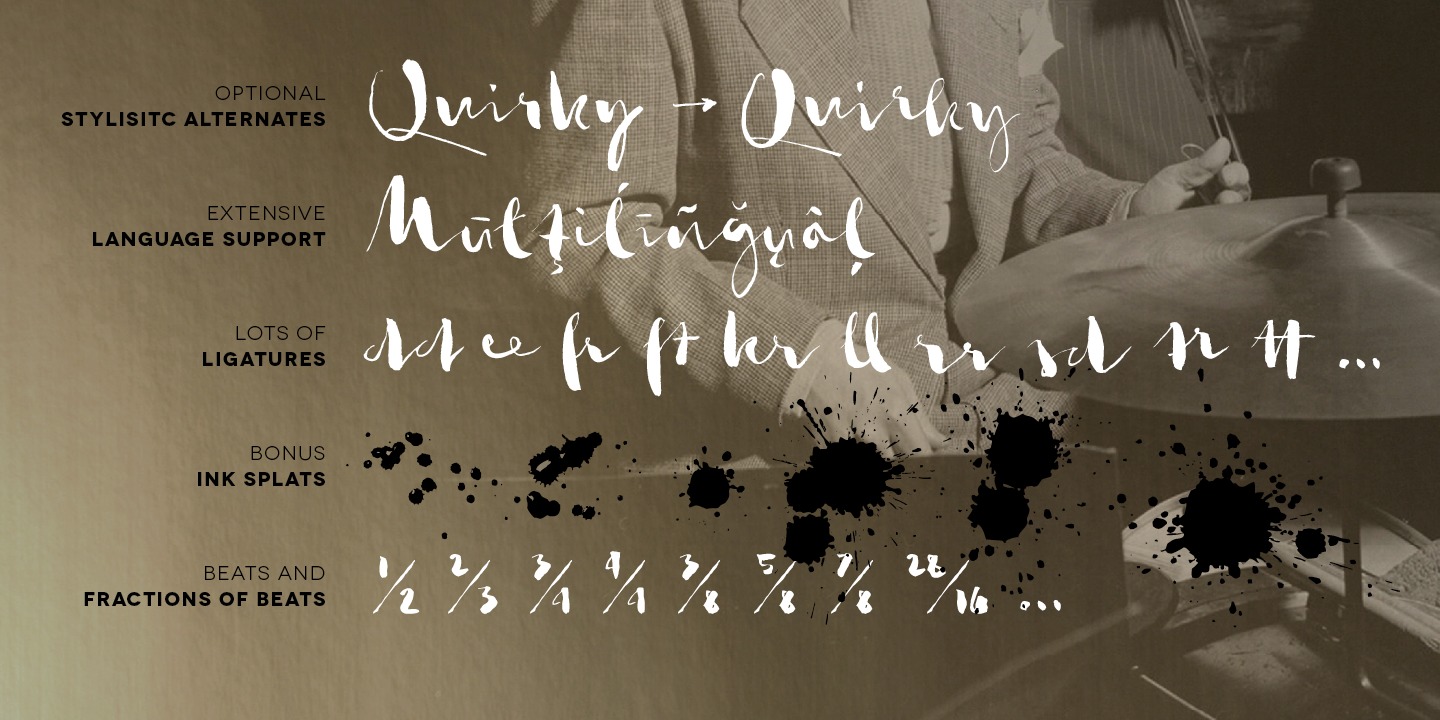 OPTIONAL
STYLISITC ALTERNATES
Quirky → Quirky
EXTENSIVE
LANGUAGE SUPPORT
Mūłţiĺīñğųâļ
LOTS OF
LIGATURES
dd ee fr ft kr ll rr sd sr tt ...
BONUS
INK SPLATS
BEATS AND
FRACTIONS OF BEATS
1/2 2/3 3/4 4/4 3/8 5/8 7/8 28/16 ...